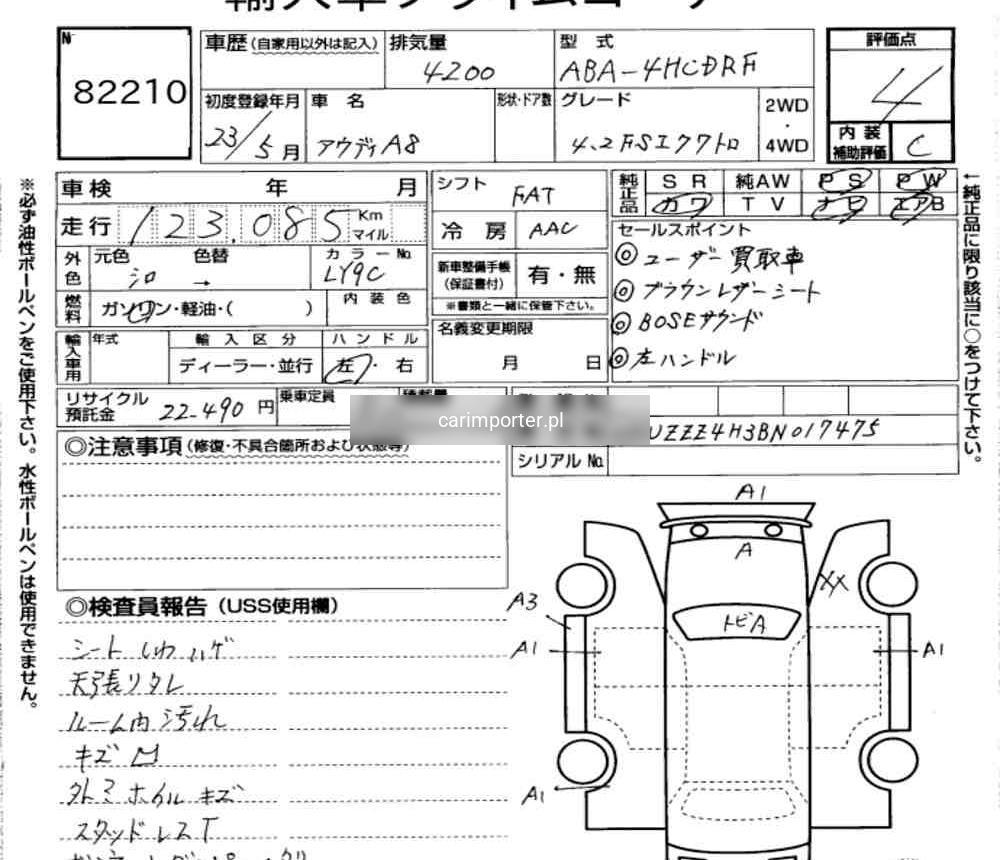 No 82210
車歴 (自家用以外は記入) 排気量 4200 型式 ABA-4HCDRF
評価点 4
内装補助評価 C
初度登録年月 23/5月 車名 アウディA8 形状・ドア数 グレード 4.2FSIクワトロ 2WD・4WD
車検 年 月
走行 123,085 Km マイル
シフト FAT
冷房 AAC
純正品 SR 純AW PS PW
カワ TV ナビ エアB
外色 元色 シロ 色替 → カラーNo LY9C
燃料 ガソリン・軽油・( ) 内装色
新車整備手帳 (保証書付) 有・無
※書類と一緒に保管下さい。
名義変更期限 月 日
セールスポイント
◎ユーザー買取車
◎ブラウンレザーシート
◎BOSEサウンド
◎左ハンドル
輸入車用 年式 輸入区分 ディーラー・並行 ハンドル 左・右
リサイクル預託金 22,490円 乗車定員
carimporter.pl
UZZZ4H3BN017475
シリアルNo.
◎注意事項 (修復・不具合箇所および状態等)
◎検査員報告 (USS使用欄)
シートしわ ハゲ
天張リタレ
ルーム内汚れ
キズ凹
外ミ ホイルキズ
スタッドレスT
A1
A
トビA
XX
A3
A1
A1
A1
※必ず油性ボールペンをご使用下さい。水性ボールペンは使用できません。
←純正品に限り該当に○をつけて下さい。